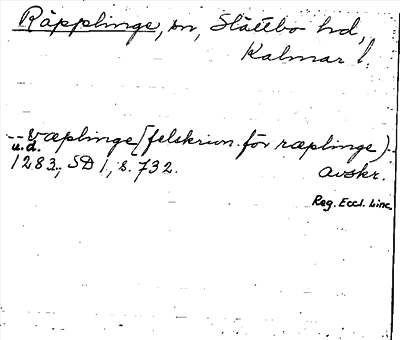 Räpplinge, sn, Slättbo hd,
Kalmar l.
--væplinge [felskrivn. för ræplinge)--
u.d.
1283, SD 1, s. 732. avskr.
Reg. Eccl. Linc.